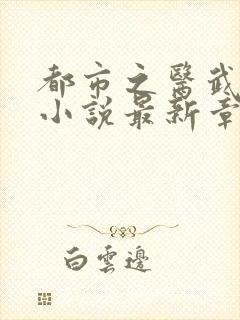 都市之醫武
小說最新章
白雲邊